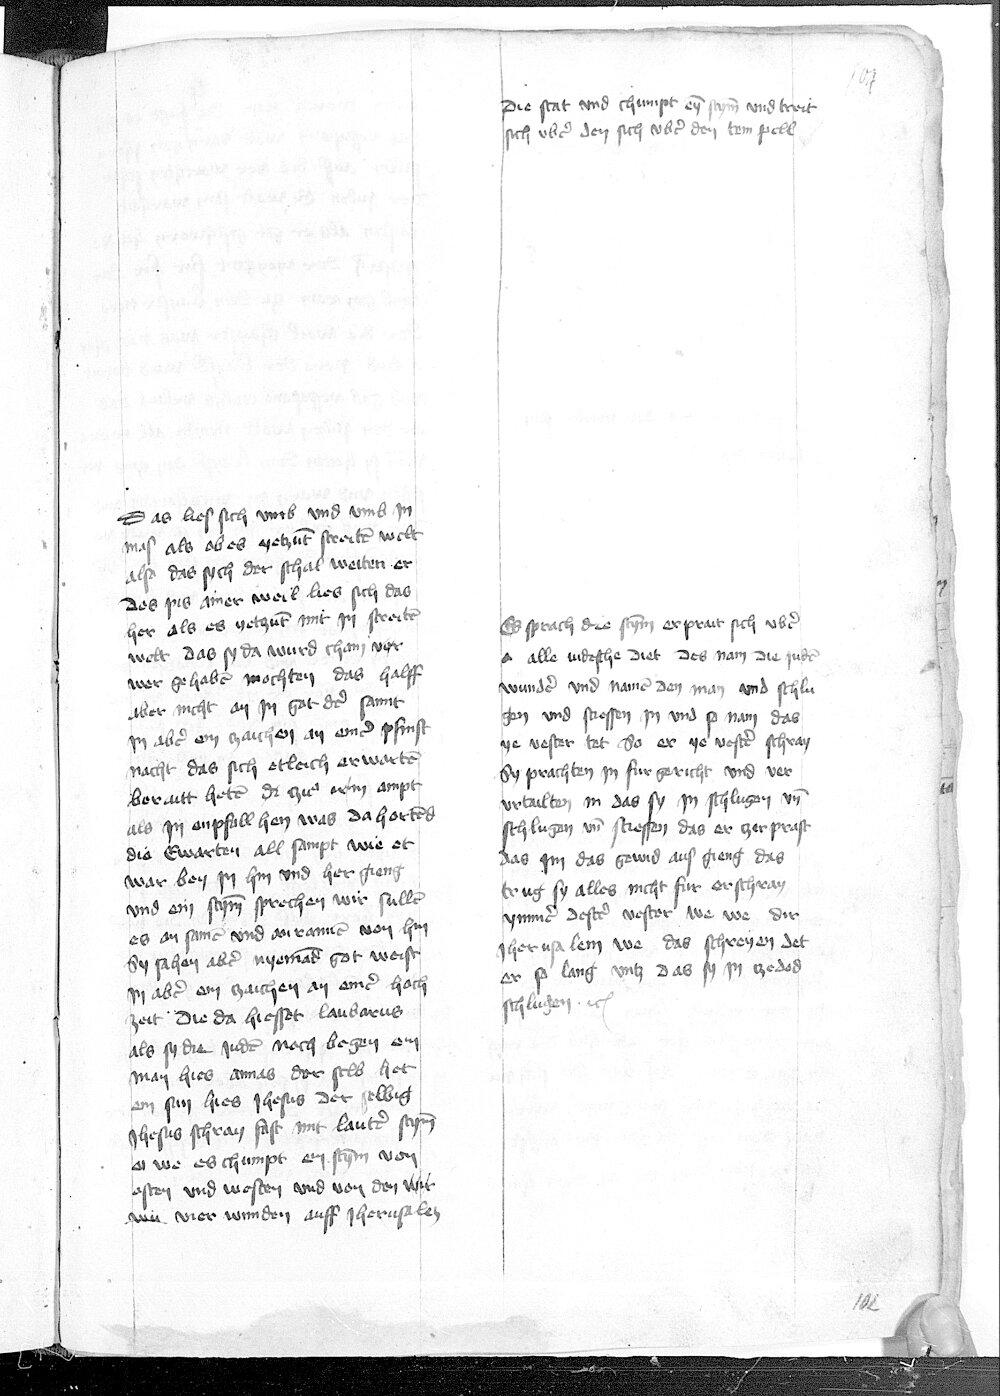 Das lies sich vmb vnd vmb in
mas als ob es yetzūt streitē welt
also das sych der schal weiten er
des pis ainer weil lies sich das
her als es yetzūt mit in streitē
welt das sy da wurd cham vor
wer gehabē mochten das halff
aber nicht an in got der sannt
in aber ein zaichen an einer pfinst
nacht das sich etleich erwartē
berautt hetē zu irm ampt
als in enpfollhen was da hortend
die Ewarten all sampt wie et
war bey in hin vnd her gieng
vnd ein stym sprechen wir sullē
es an samē vnd von hin
Sy sahen aber nyemād got weist
in aber ein zaichen an einer hoch
zeit Die da hiesset laubarus
als sy die Judē noch begen ein
man hies annas der selb het
ein sun hies Jhesus der selbig
Jhesus schray fast mit lauter stym
o we es chumpt ein stym von
osten vnd westen vnd von den
vier winden auff Jherusalen
Die stat vnd chumpt ey stym vnd treit
sich vber den sich vber den tempell
Es sprach die stym erprait sich vber
alle iudesche diet des nam die judē
wunder vnd namē den man vnd schlu
gen vnd stiessen in vnd so man das
ye vester tet So er ye vester schray
Sy prachten in fur gericht vnd ver
vrtailten in das sy in schlugen vn̄
schlugen vn̄ stiessen das er zerprast
das im das gewid aus gieng das
trug sy alles nicht fur er schray
ymmer dester vester we we dir
Jherusalem we das schreyen det
er so lang vntz das sy in ze dod
schlugen
107
102